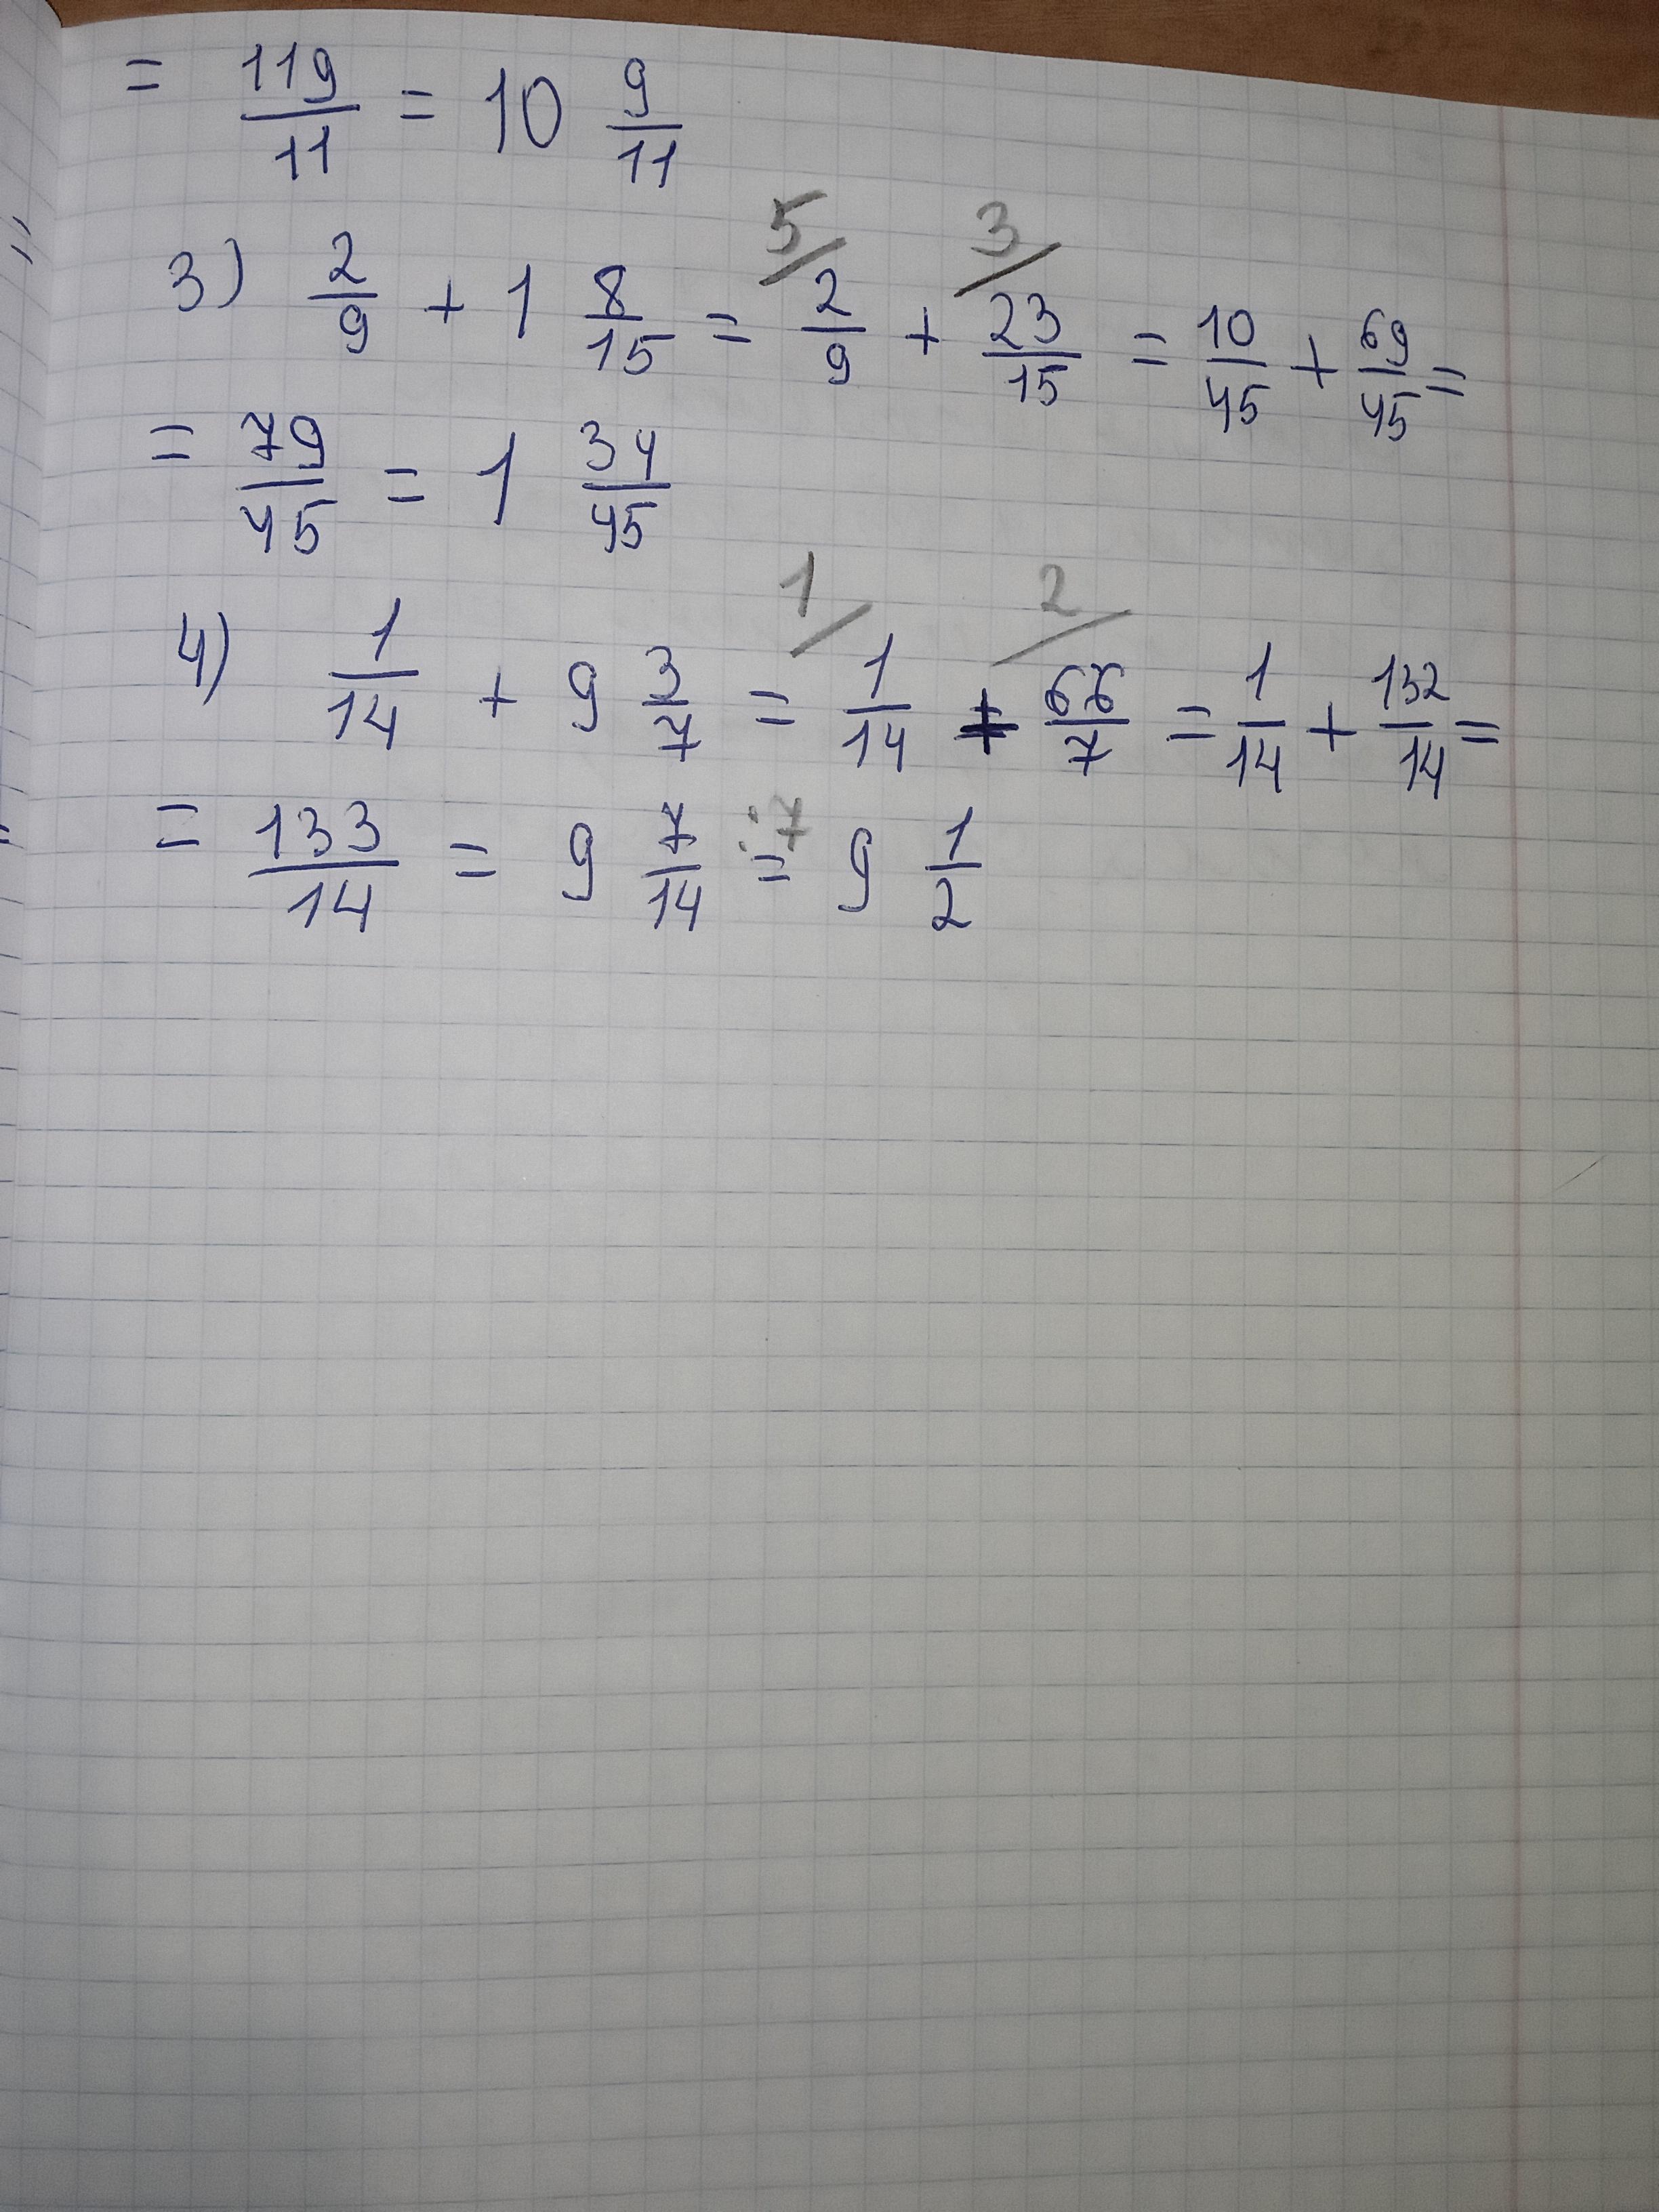 = 119/11 = 10 9/11
3) 2/9 + 1 8/15 = 5/ 2/9 + 3/ 23/15 = 10/45 + 69/45 =
= 79/45 = 1 34/45
4) 1/14 + 9 3/7 = 1/ 1/14 + 2/ 66/7 = 1/14 + 132/14 =
= 133/14 = 9 7/14 :7 = 9 1/2